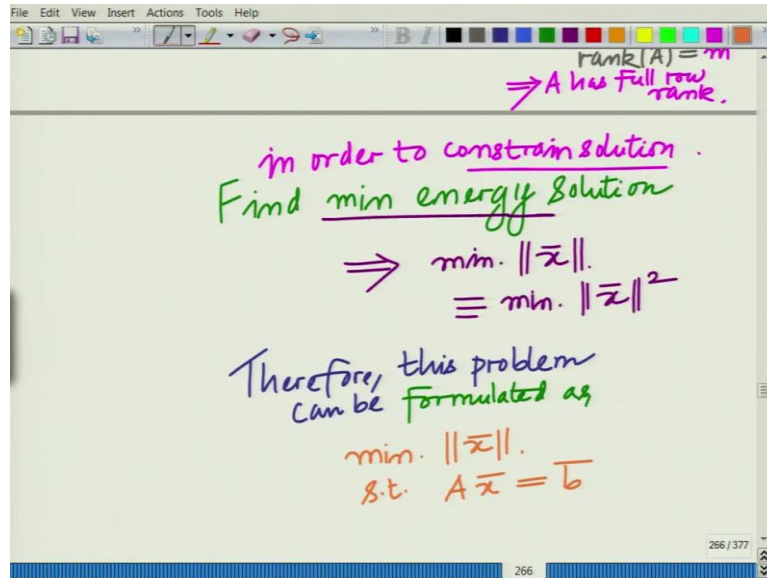 File Edit View Insert Actions Tools Help
B I
rank(A) = m
⇒ A has full row
rank.
in order to constrain solution.
Find min energy solution
⇒ min. ||x̄||.
≡ min. ||x̄||²
Therefore, this problem
can be formulated as
min. ||x̄||.
s.t. A x̄ = b̄
266 / 377
266